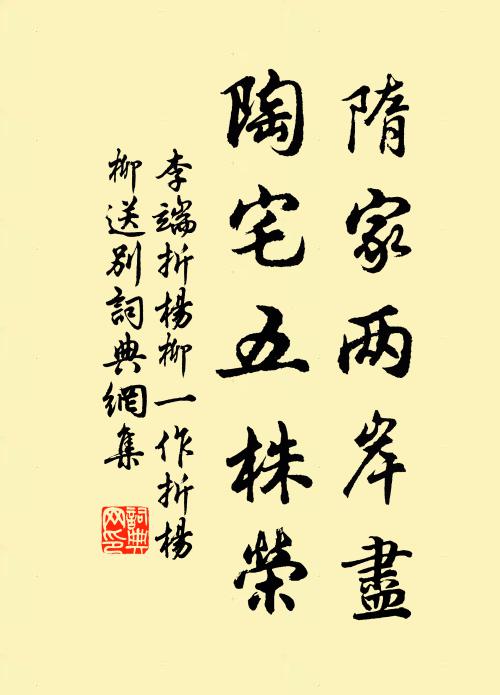 隋家两岸盡
陶宅五株榮
李端折楊柳一作折楊
柳送别詞典網集
詞典
网印